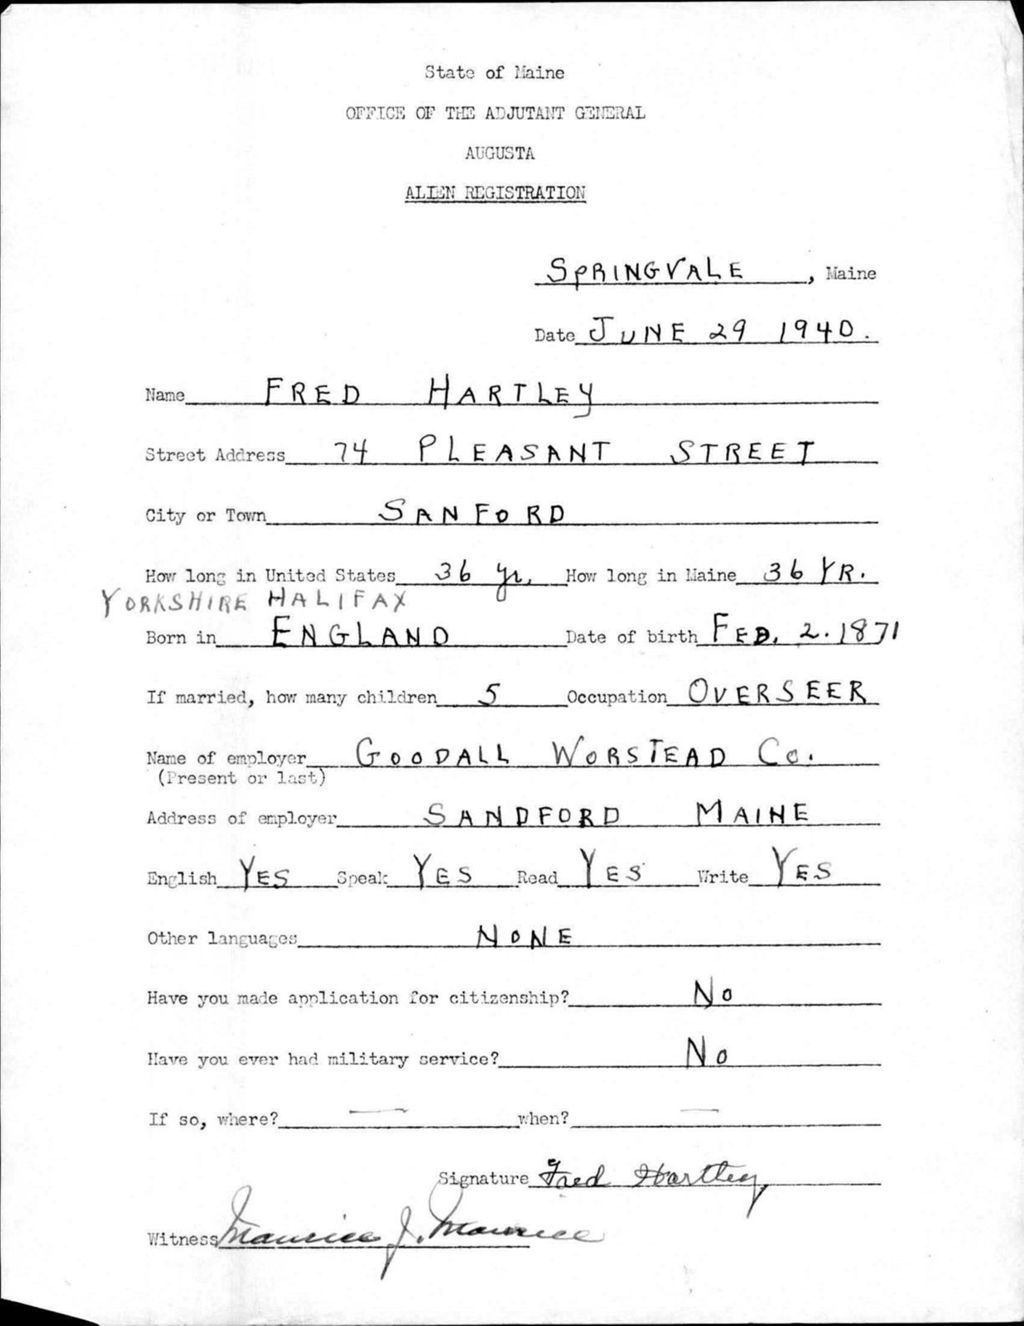 State of Maine
OFFICE OF THE ADJUTANT GENERAL
AUGUSTA
ALIEN REGISTRATION
SPRINGVALE, Maine
Date JUNE 29 1940.
Name FRED HARTLEY
Street Address 74 PLEASANT STREET
City or Town SANFORD
How long in United States 36 yr. How long in Maine 36 YR.
YORKSHIRE HALIFAX
Born in ENGLAND Date of birth FEB. 2. 1871
If married, how many children 5 Occupation OVERSEER
Name of employer GOODALL WORSTEAD Co.
(Present or last)
Address of employer SANDFORD MAINE
English YES Speak YES Read YES Write YES
Other languages NONE
Have you made application for citizenship? No
Have you ever had military service? No
If so, where? — when? —
Signature Fred Hartley
Witness Maurice J. Maurice